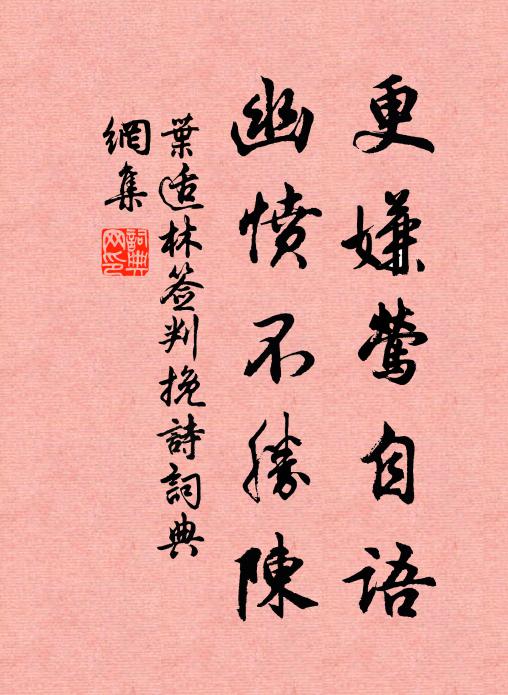 更嫌鶯自語
幽憤不勝陳
葉适林簽判挽詩詞典
網集
詞典網印